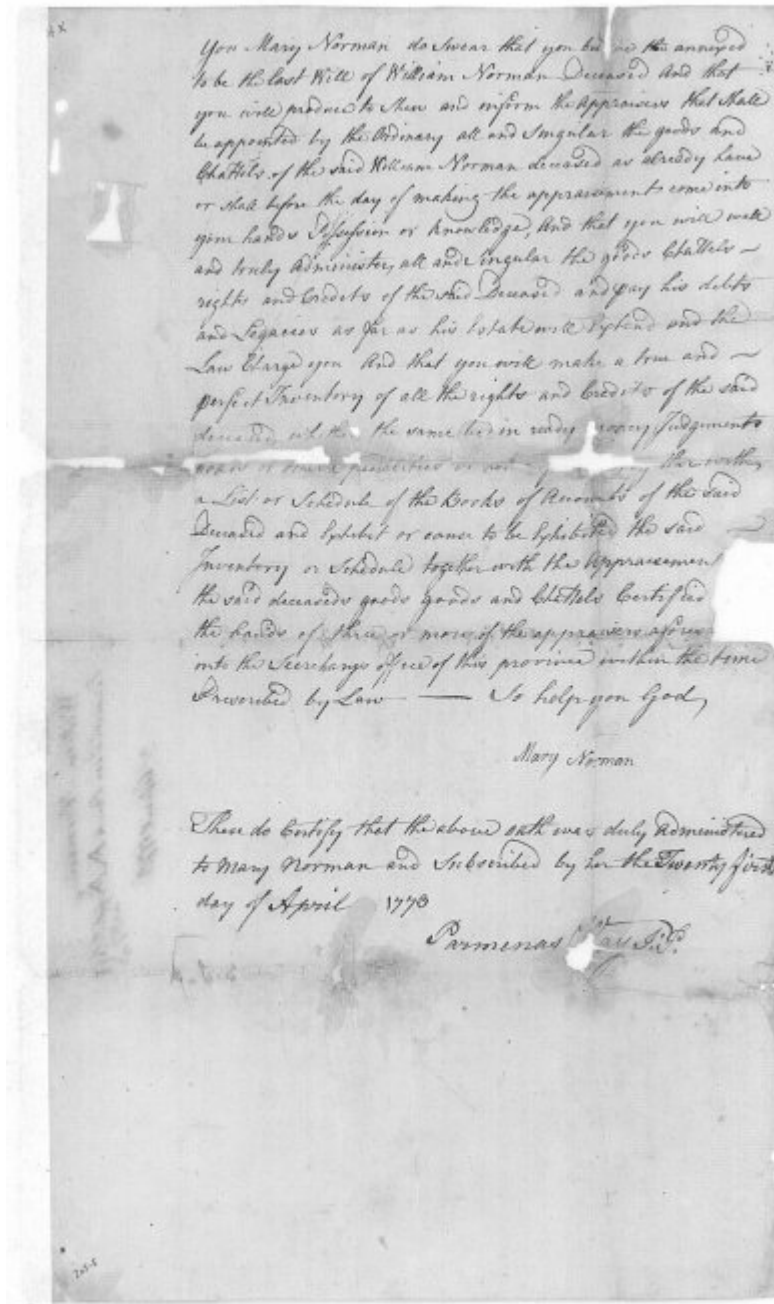 You Mary Norman do Swear that you the annexed
to be the last Will of William Norman Deceased And that
you will produce to Shew and inform the Appraisers that Shall
be appointed by the Ordinary all and Singular the goods and
Chattels of the said William Norman deceased as already have
or shall before the day of making the appraisement come into
your hands Possession or knowledge, And that you will well
and truly Administer, all and singular the goods Chattels
rights and Credits of the said Deceased and pay his debts
and Legacies as far as his Estate will Extend and the
Law Charge you And that you will make a true and
perfect Inventory of all the rights and Credits of the said
deceased the same in ready Judgments
or or
a List or Schedule of the Books of Accounts of the said
Deceased and Exhibit or cause to be Exhibited the said
Inventory or Schedule together with the Appraisement
the said deceaseds goods goods and Chattels Certified
the hands of three or more of the appraisers
into the office of this province within the time
Prescribed by Law — So help you God,
Mary Norman
These do Certify that the above oath was duly Administered
to Mary Norman and Subscribed by her the Twenty first
day of April 1773
Parmenas